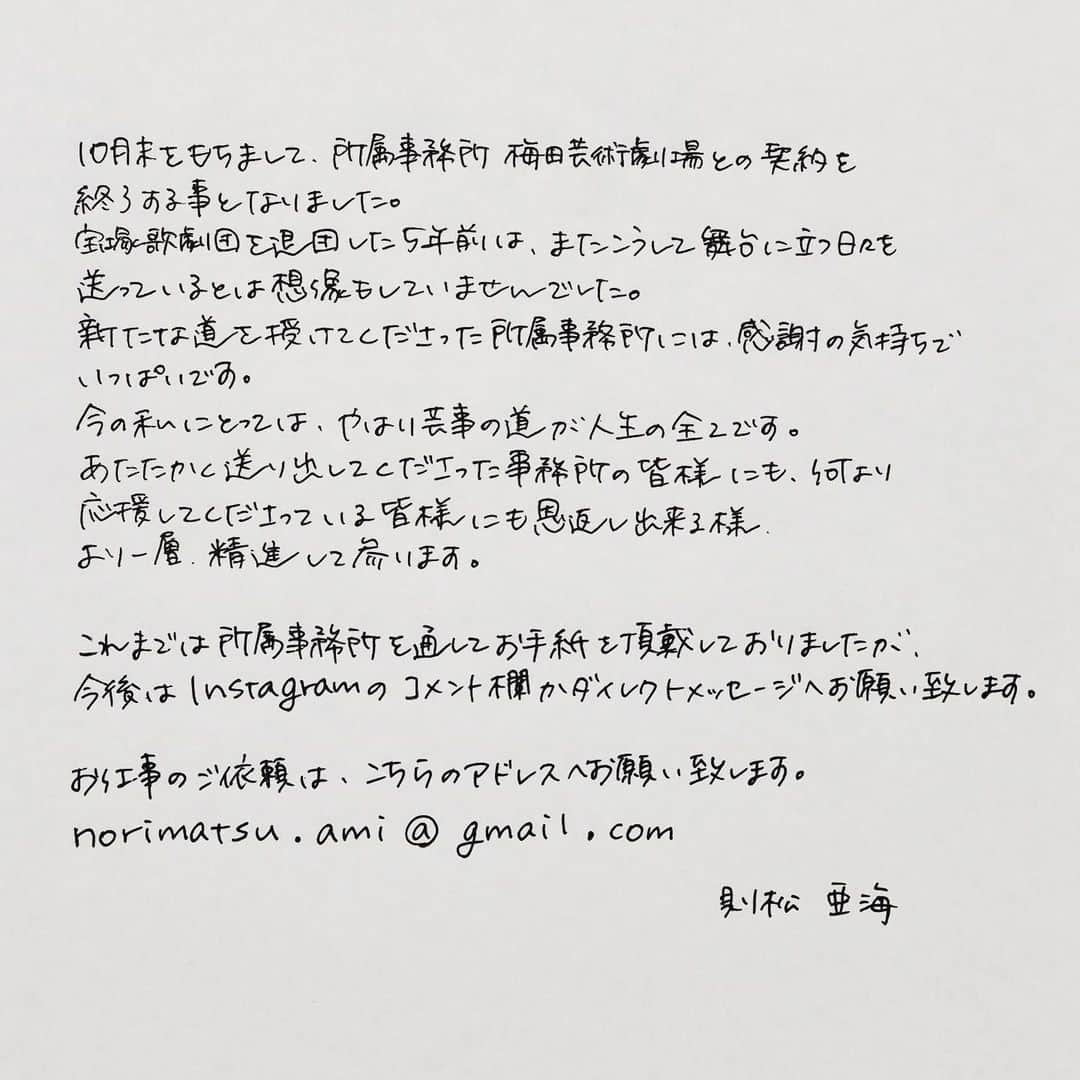 10月末をもちまして、所属事務所 梅田芸術劇場との契約を
終了する事となりました。
宝塚歌劇団を退団した5年前は、またこうして舞台に立つ日々を
送っているとは想像もしていませんでした。
新たな道を授けてくださった所属事務所には、感謝の気持ちで
いっぱいです。
今の私にとっては、やはり芸事の道が人生の全てです。
あたたかく送り出してくださった事務所の皆様にも、何より
応援してくださっている皆様にも恩返し出来る様、
より一層、精進して参ります。
これまでは所属事務所を通してお手紙を頂戴しておりましたが、
今後はInstagramのコメント欄かダイレクトメッセージへお願い致します。
お仕事のご依頼は、こちらのアドレスへお願い致します。
norimatsu.ami@gmail.com
則松 亜海